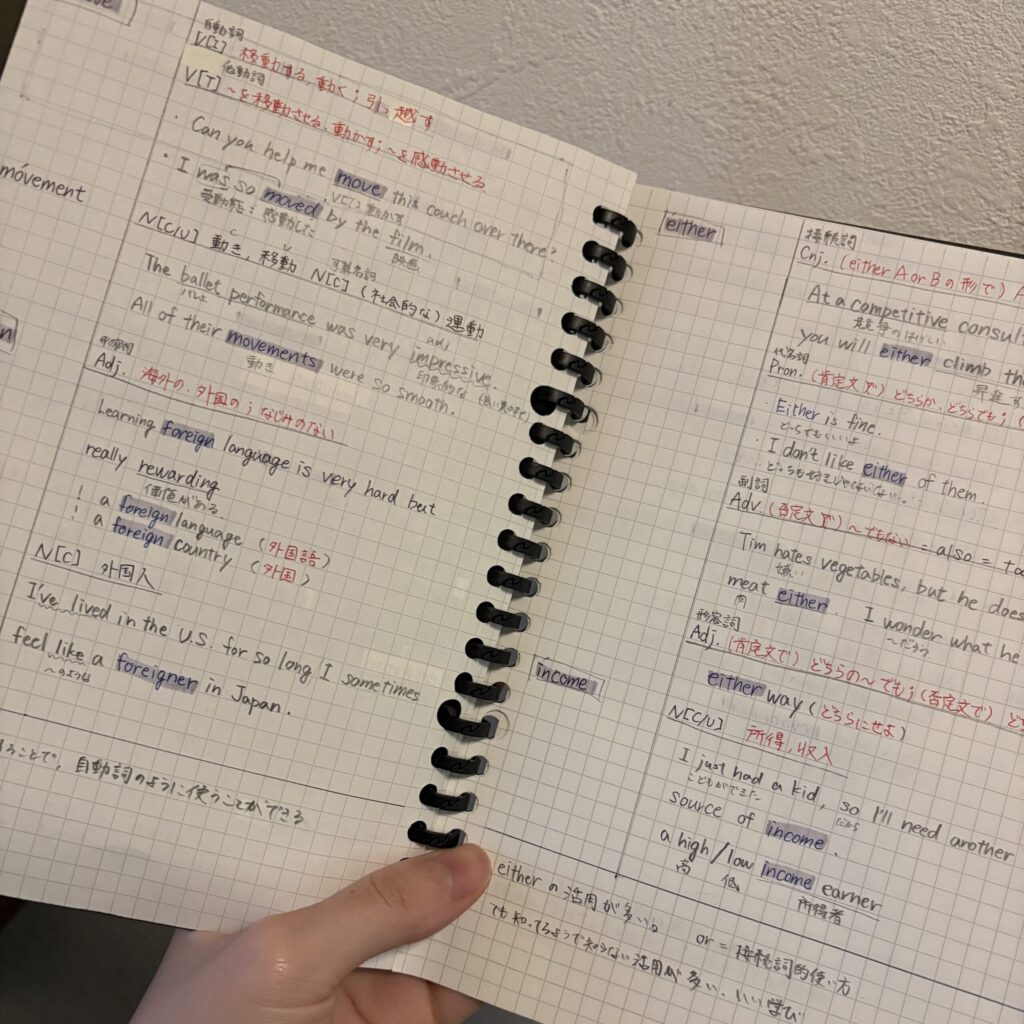 móvement
自動詞
V[I] 移動する、動く; 引っ越す
他動詞
V[T] ~を移動させる、動かす; ~を感動させる
・Can you help me move this couch over there?
V[T] 動かす
・I was so moved by the film.
受動態: 感動した 映画
可算名詞
N[C/U] 動き, 移動 N[C] (社会的な) 運動
The ballet performance was very impressive.
バレエ
adj
印象的な
All of their movements were so smooth.
動き
形容詞
Adj. 海外の、外国の; なじみのない
Learning foreign language is very hard but
really rewarding
価値がある
! a foreign language (外国語)
! a foreign country (外国)
N[C] 外国人
I've lived in the U.S. for so long I sometimes
feel like a foreigner in Japan.
~のような
うことで, 自動詞のように使うことができる
either
接続詞
Cnj. (either A or B の形で)
At a competitive consul
競争のはげしい
you will either climb th
代名詞
Pron. (肯定文で) どちらか、どちらでも;
・Either is fine.
どっちでもいいよ
・I don't like either of them.
どっちも好きじゃない。
副詞
Adv (否定文で) ~でもない = also = to
Tim hates vegetables, but he does
嫌い
meat either. I wonder what he
肉 ~だろう
形容詞
Adj. (肯定文で) どちらの~でも; (否定文で)
either way (どちらにせよ)
income
N[C/U] 所得, 収入
I just had a kid, so I'll need another
こどもができた だから
source of income.
a high/low income earner
高 低 所得者
eitherの活用が多い。 or = 接続詞的使い方
でも知ってるようで知らない活用が多い、いい学び